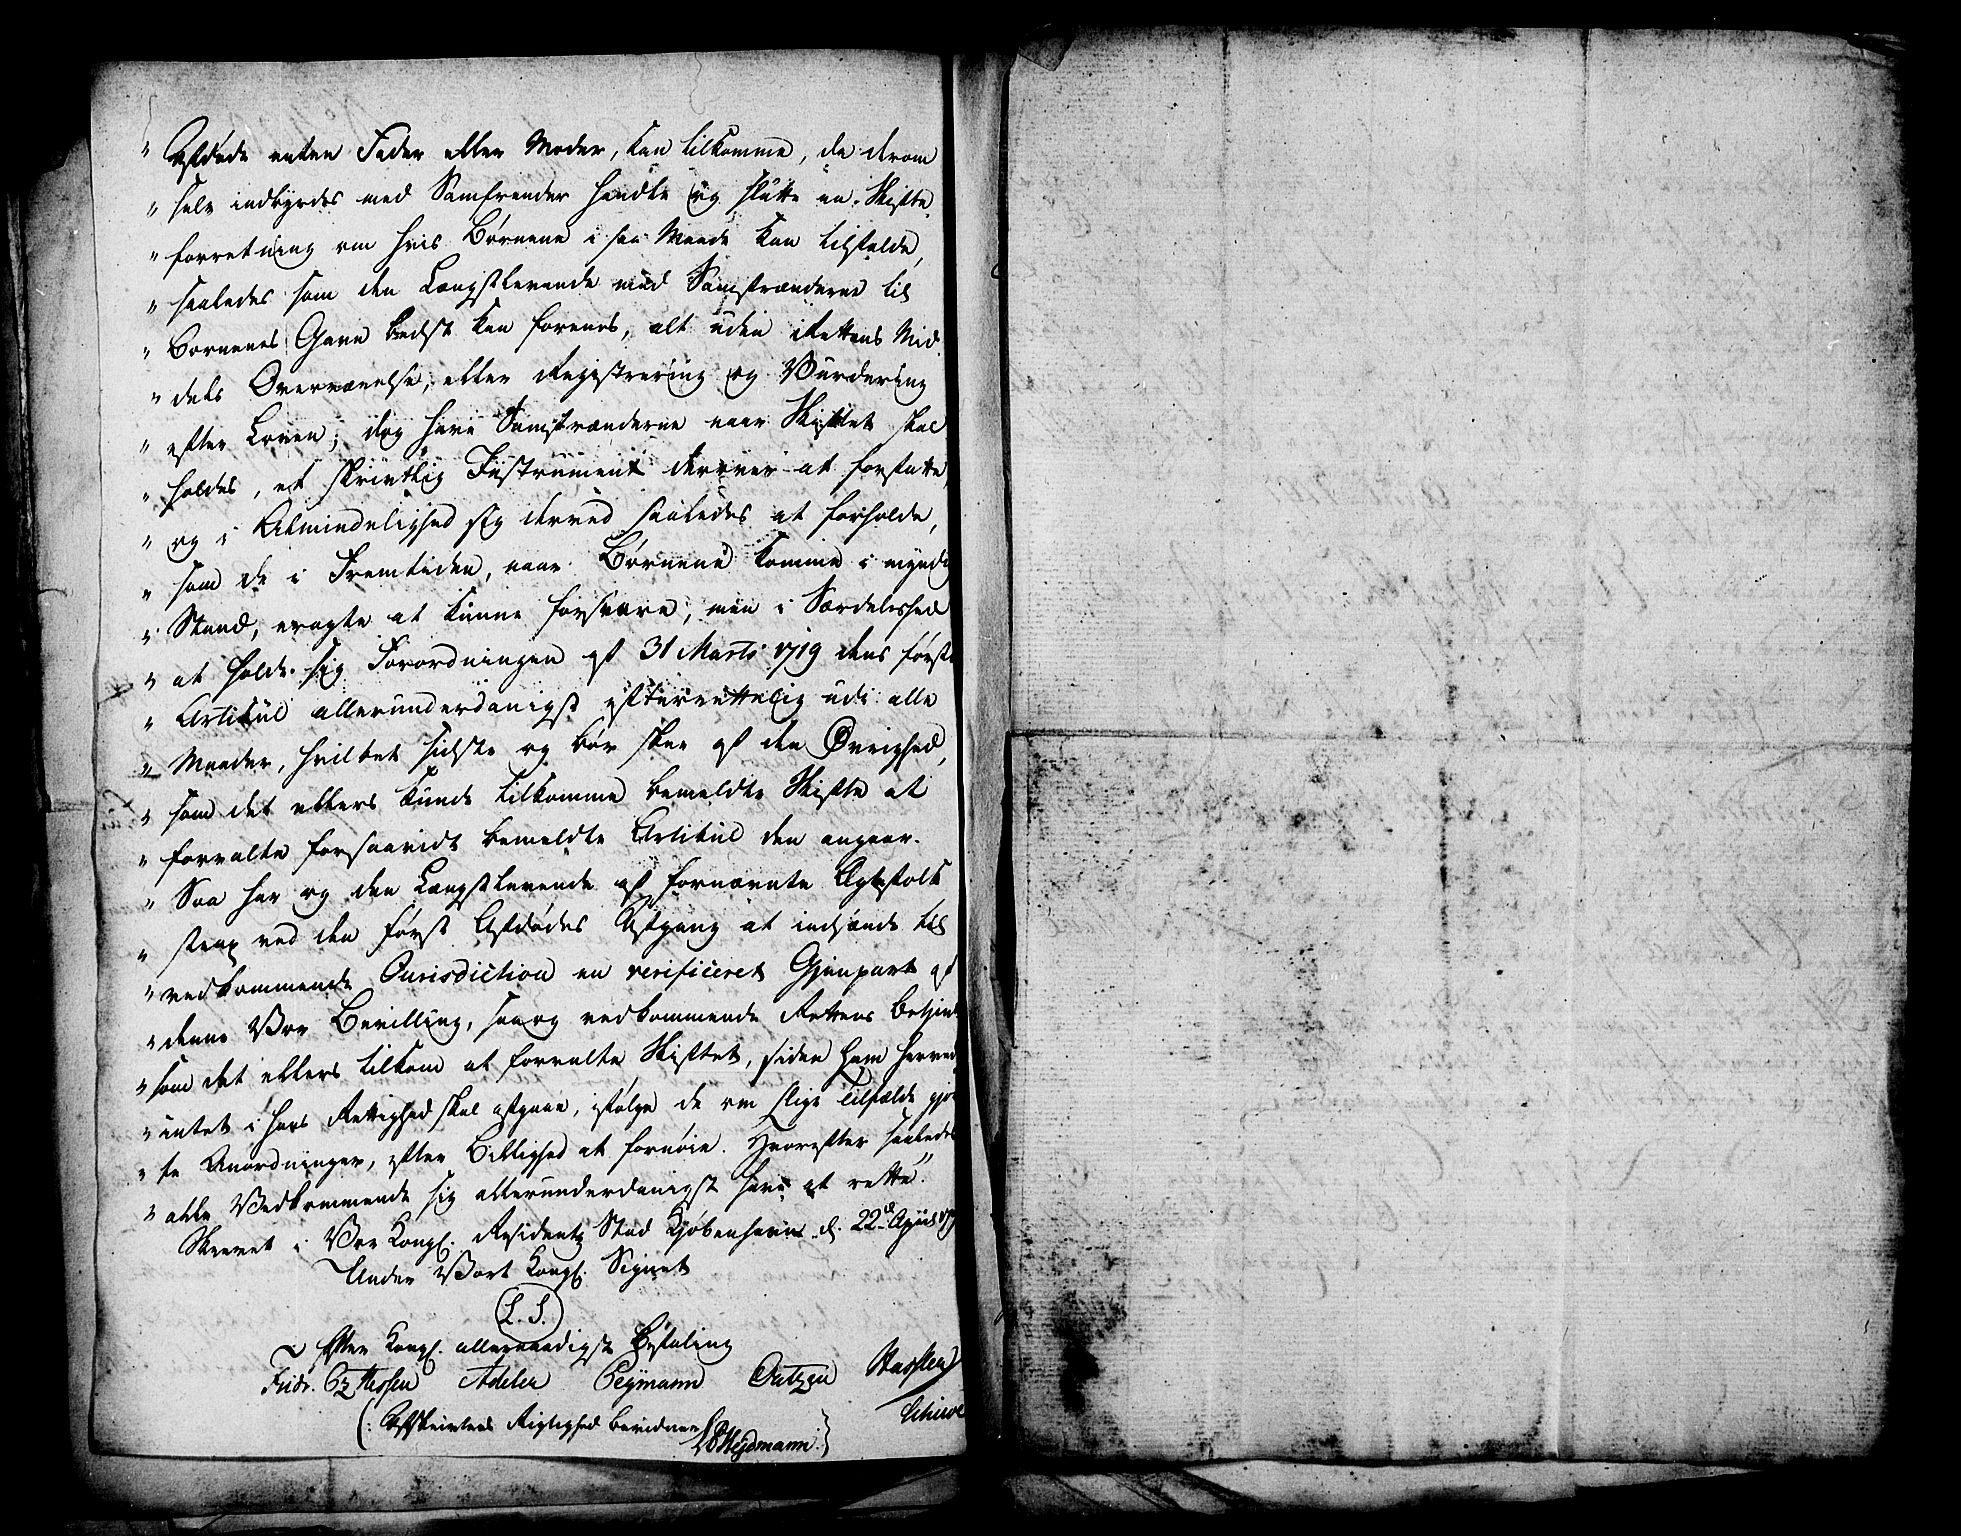 " Afdøde enten Fader eller Moder, kan tilkomme, da derom
" selv indbyrdes med Samfrender handle og slutte en Skifte
" forretning om hvis Børnene i saa Maade kan tilfalde,
" saaledes som den Længstlevende med Samfrænderne til
" Børnenes Gavn bedst kan forenes, alt uden Rettens Mid
" dels Overværelse, eller Registrering og Vurdering
" efter Loven; dog have Samfrænderne naar Skiftet skal
" holdes, et skrivtlig Instrument derover at forfatte,
" og i Almindelighed sig derved saaledes at forholde,
" som de i Fremtiden, naar Børnene komme i myndig
" Stand, eragte at kunne forsvare; men i Særdeleshed
" at holde sig Forordningen af 31 Marts 1719 dens første
" Artikül allerunderdanigst efterrettelig udi alle
" Maader, hvilket sidste og bør skee af den Øvrighed,
" som det ellers kunde tilkomme bemeldte Skifte at
" forvalte forsaavidt bemeldte Artikül den angaar.
" Saa har og den Længstlevende af fornævnte Ægtefolk
" strax ved den først Afdødes Afgang at indsænde til
" vedkommende Jurisdiction en verificeret Gjenpart af
" denne Vor Bevilling, saa og vedkommende Rettens Betjent
" som det ellers tilkom at forvalte Skiftet, siden ham herved
" intet i hans Rettighed skal afgaae, ifølge de om slige Tilfælde gjor
" te Anordninger, efter Billighed at fornøie. Hvorefter saaledes
" alle Vedkommende sig allerunderdanigst have at rette."
Skrevet i Vor Kongl. Residentz Stad Kjøbenhavn d. 22d
Under Vort Kongl. Signet
(L. S.)
Efter Kongl. allernaadigste Befaling
Fridr. Hessen Adeler Peymann
(: Afskrivtens Rigtighed bevidner Heydmann :)